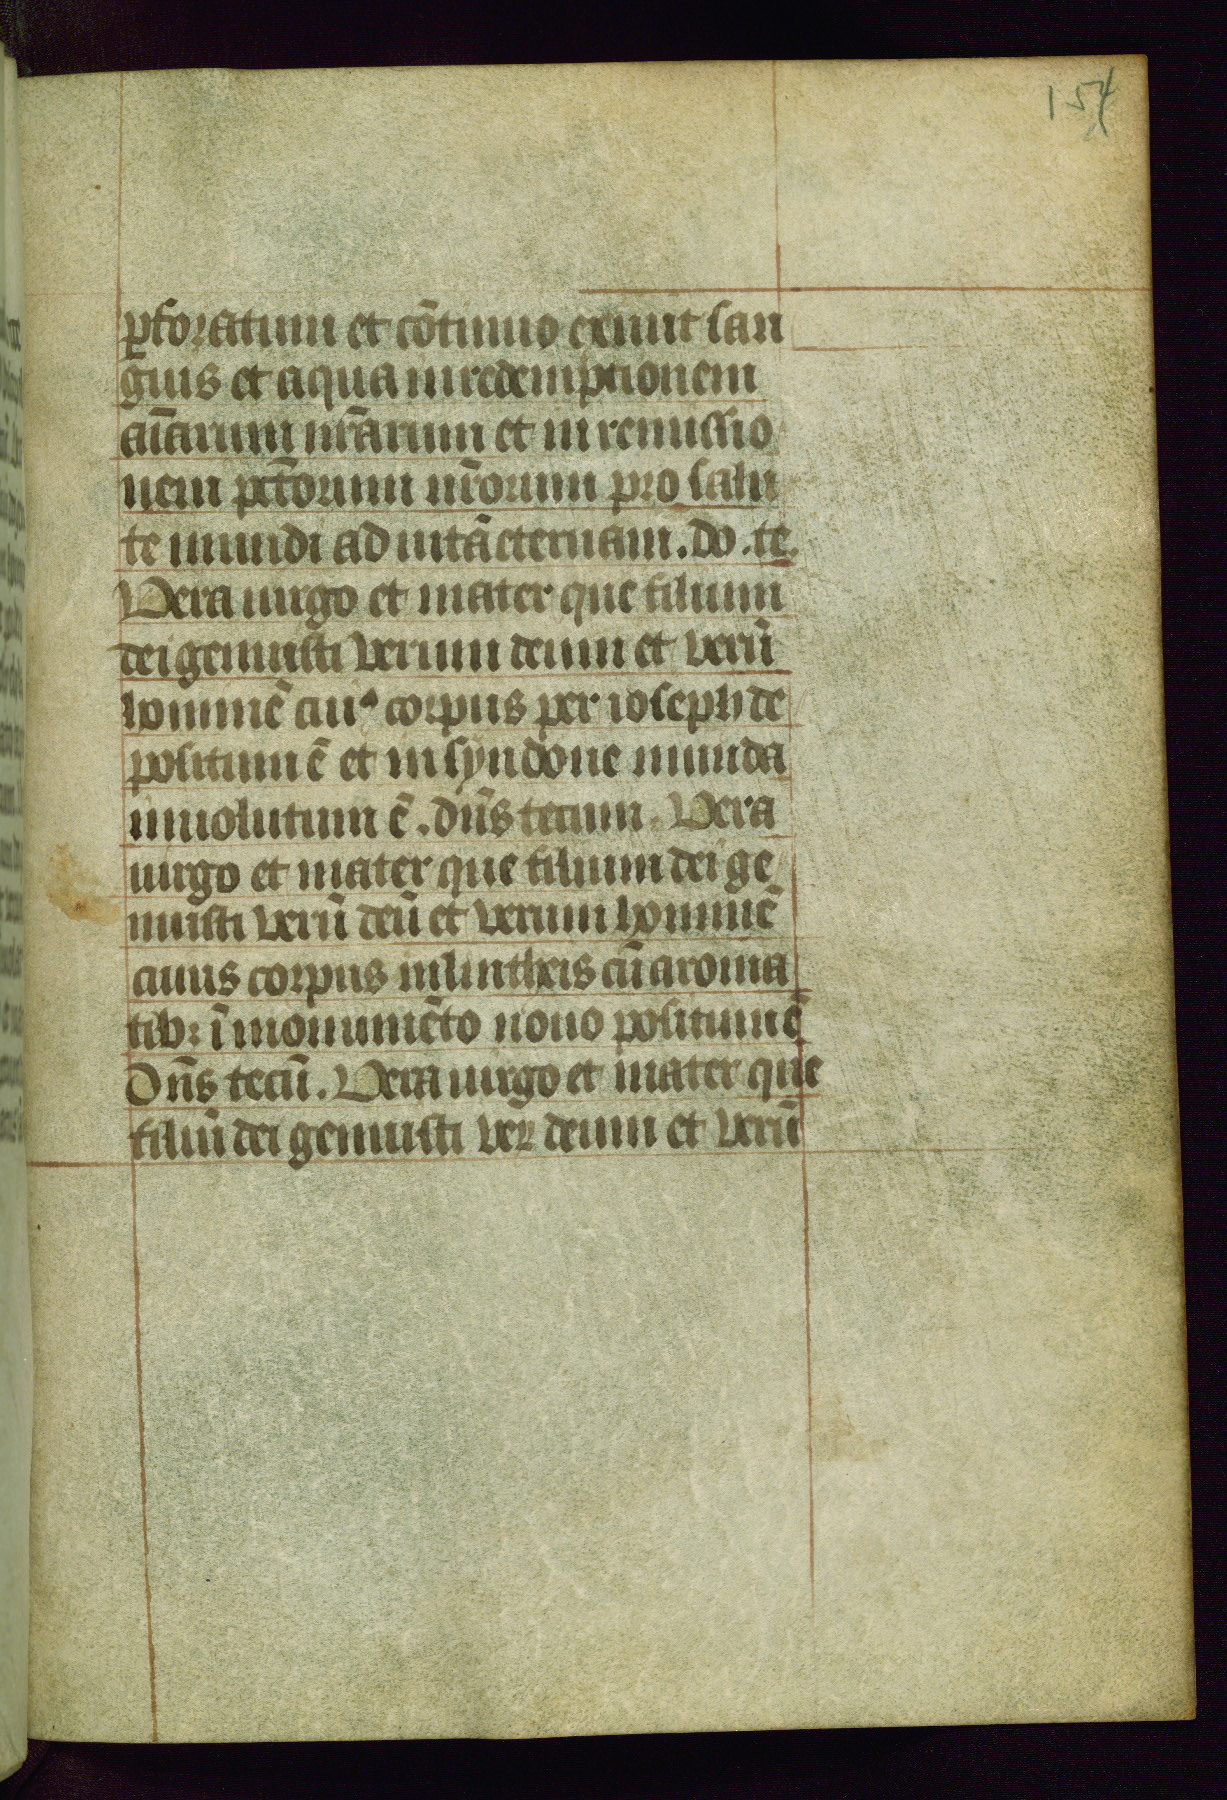 154
ꝑforatum et cōtinuo exiuit san
guis et aqua in redemptionem
aīarum nr̄arum et in remissio
nem pctōrum nr̄orum pro salu
te mundi ad uitā eternam. do. te.
Vera uirgo et mater que filium
dei genuisti verum deum et verū
hominē cuiꝰ corpus per ioseph de
positum ē et in syndone munda
inuolutum ē. dn̄s tecum. Vera
uirgo et mater que filium dei ge
nuisti verū deū et verum hominē
cuius corpus in lintheis cū aroma
tibꝫ ī monumēto nouo positum ē
Dn̄s tecū. Vera uirgo et mater que
filiū dei genuisti veꝝ deum et verū